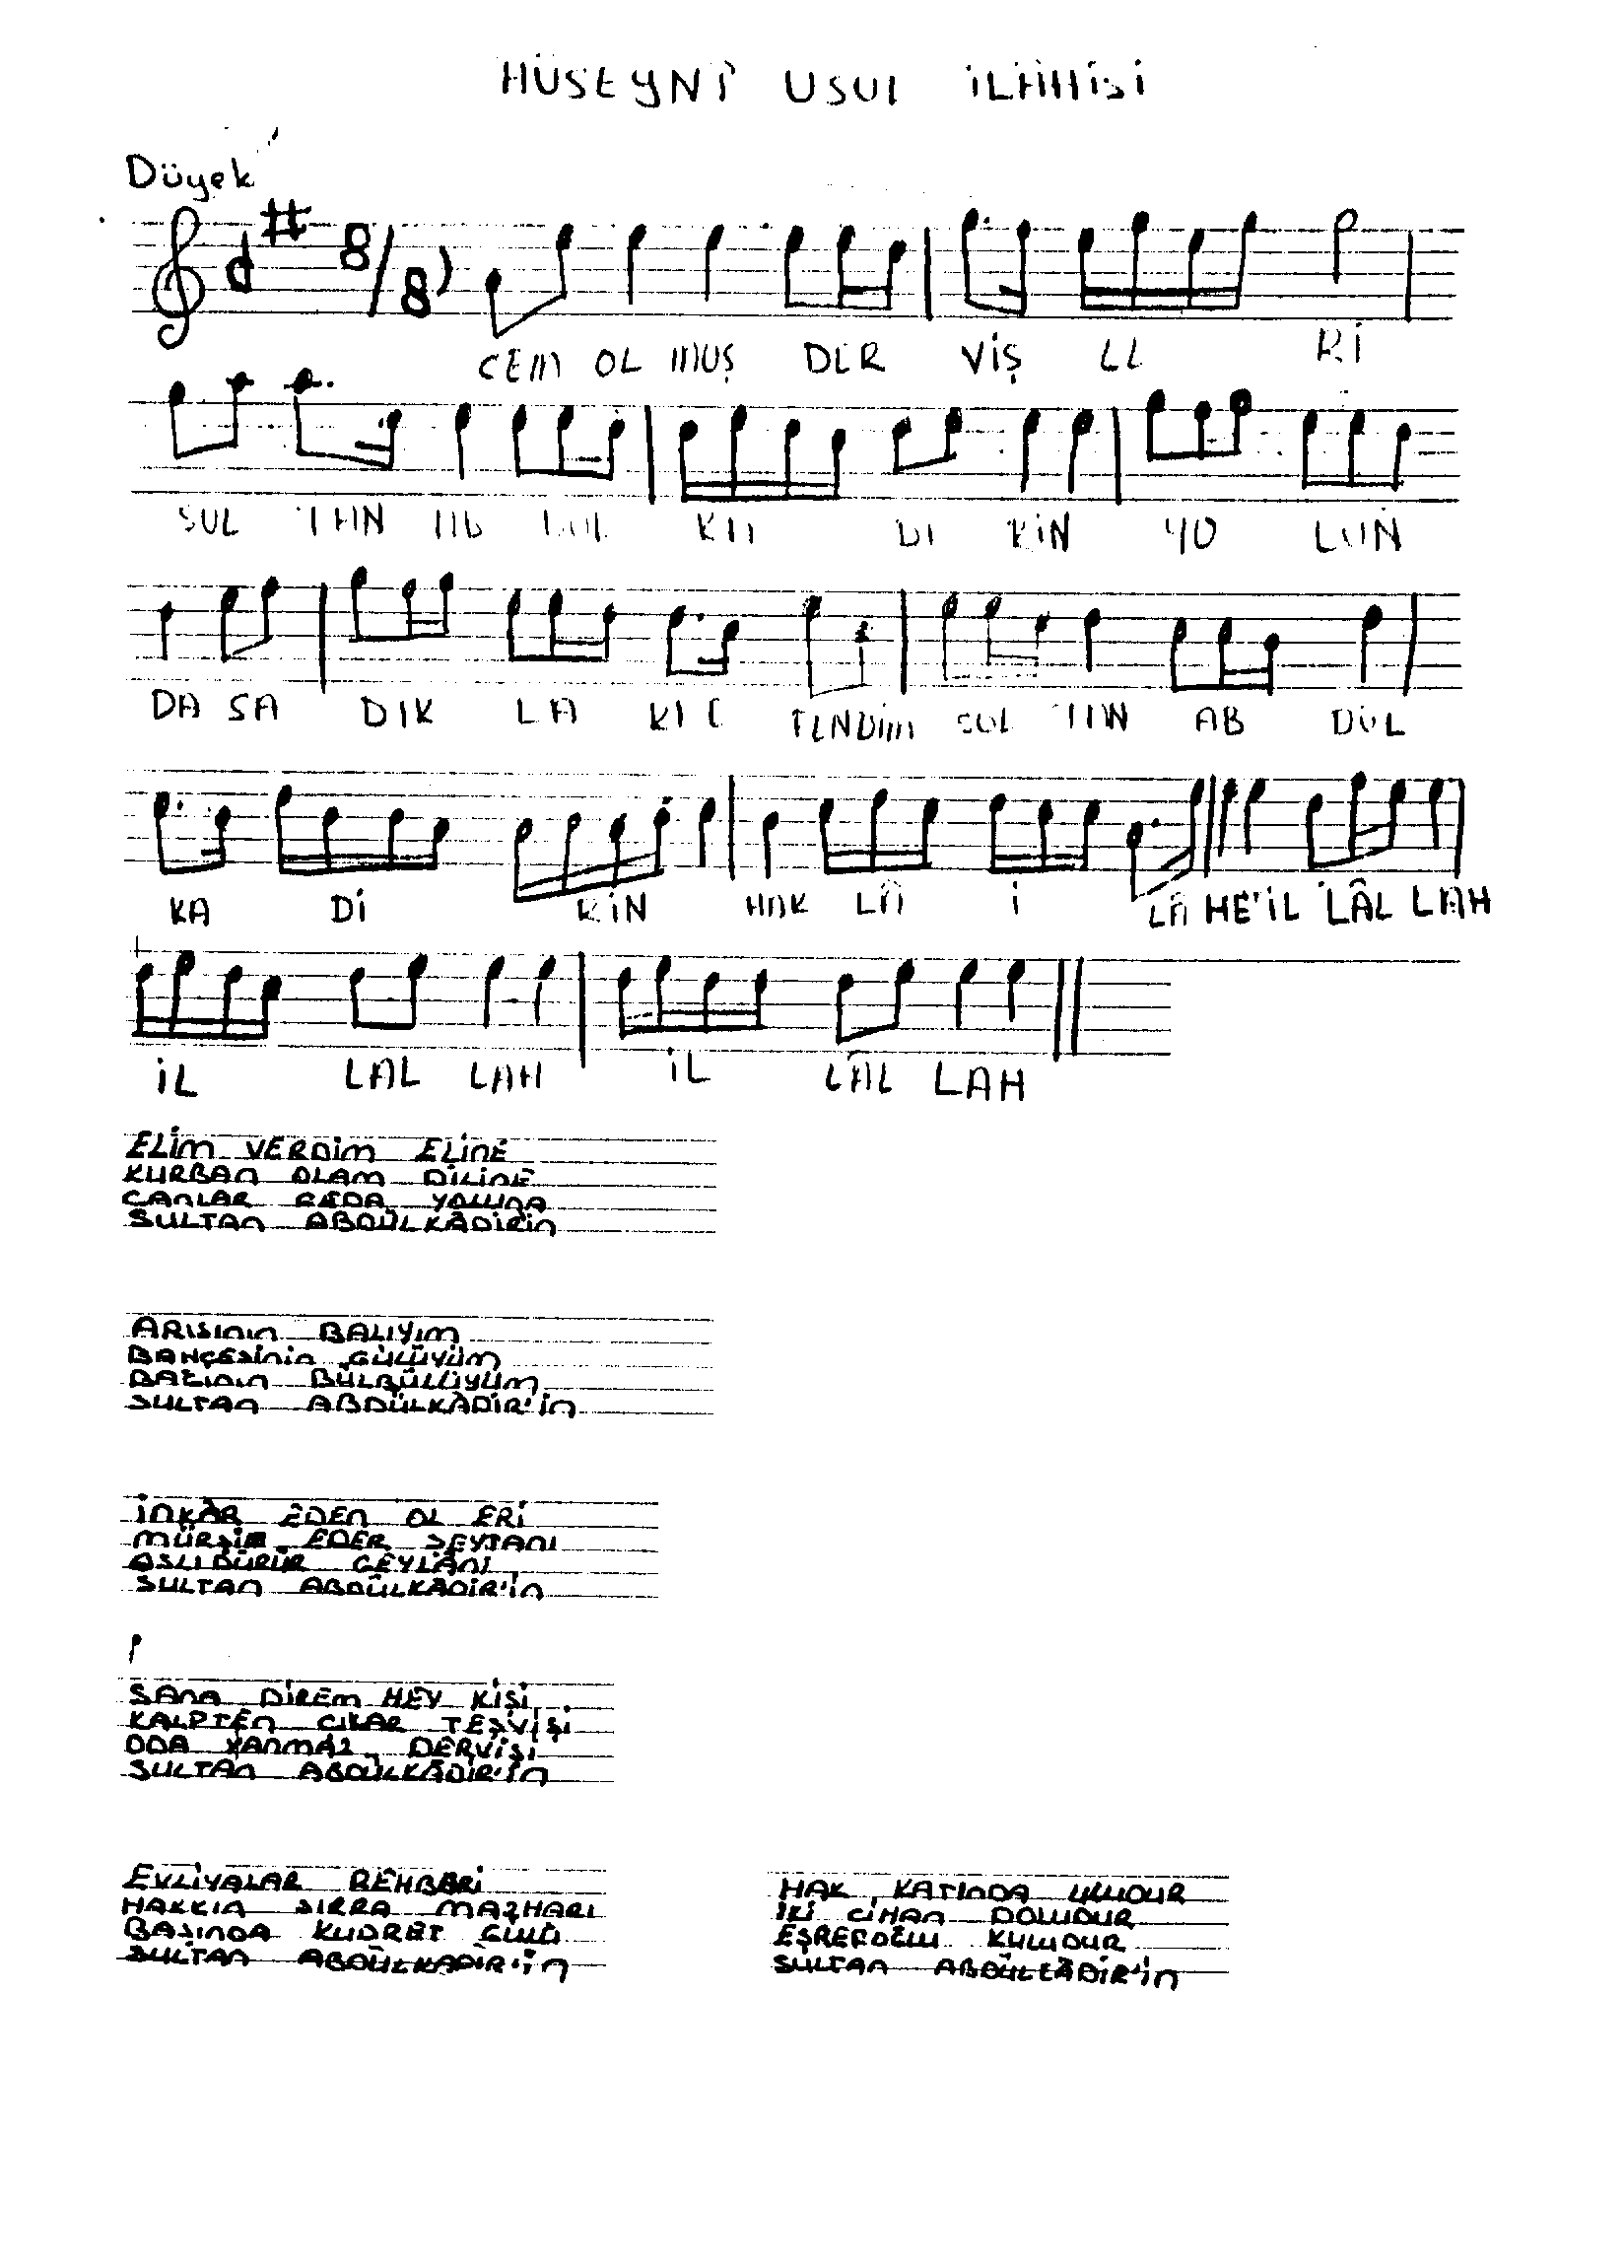 HÜSEYNİ USUL İLAHİSİ
Düyek
8/8
CEM OL MUŞ DER VİŞ LE Rİ
SUL TAN AB DÜL KA Dİ RİN YO LUN
DA SA DIK LA RI E FENDİM SUL TAN AB DÜL
KA Dİ RİN HAK LÂ İ LÂ HE'İL LÂL LAH
İL LAL LAH İL LÂL LAH
ELİM VERDİM ELİNE
KURBAN OLAM DİLİNE
CANLAR FEDA YOLUNA
SULTAN ABDÜLKÂDİRİN
ARISININ BALIYIM
BAHÇESİNİN GÜLÜYÜM
BAĞININ BÜLBÜLÜYÜM
SULTAN ABDÜLKÂDİR'İN
İNKÂR EDEN OL ERİ
EDER ŞEYTANI
ASLIDÜRÜR GEYLÂNİ
SULTAN ABDÜLKÂDİR'İN
SANA DİREM HEY KİŞİ
KALPTEN ÇIKAR TEŞVİŞİ
ODA YANMAZ DERVİŞİ
SULTAN ABDÜLKÂDİR'İN
EVLİYALAR REHBERİ
HAKKIN SIRRA MAZHARI
BAŞINDA KUDRET GÜLÜ
SULTAN ABDÜLKADİR'İN
HAK KATINDA ULUDUR
İKİ CİHAN DOLUDUR
EŞREFOĞLU KULUDUR
SULTAN ABDÜLKÂDİR'İN